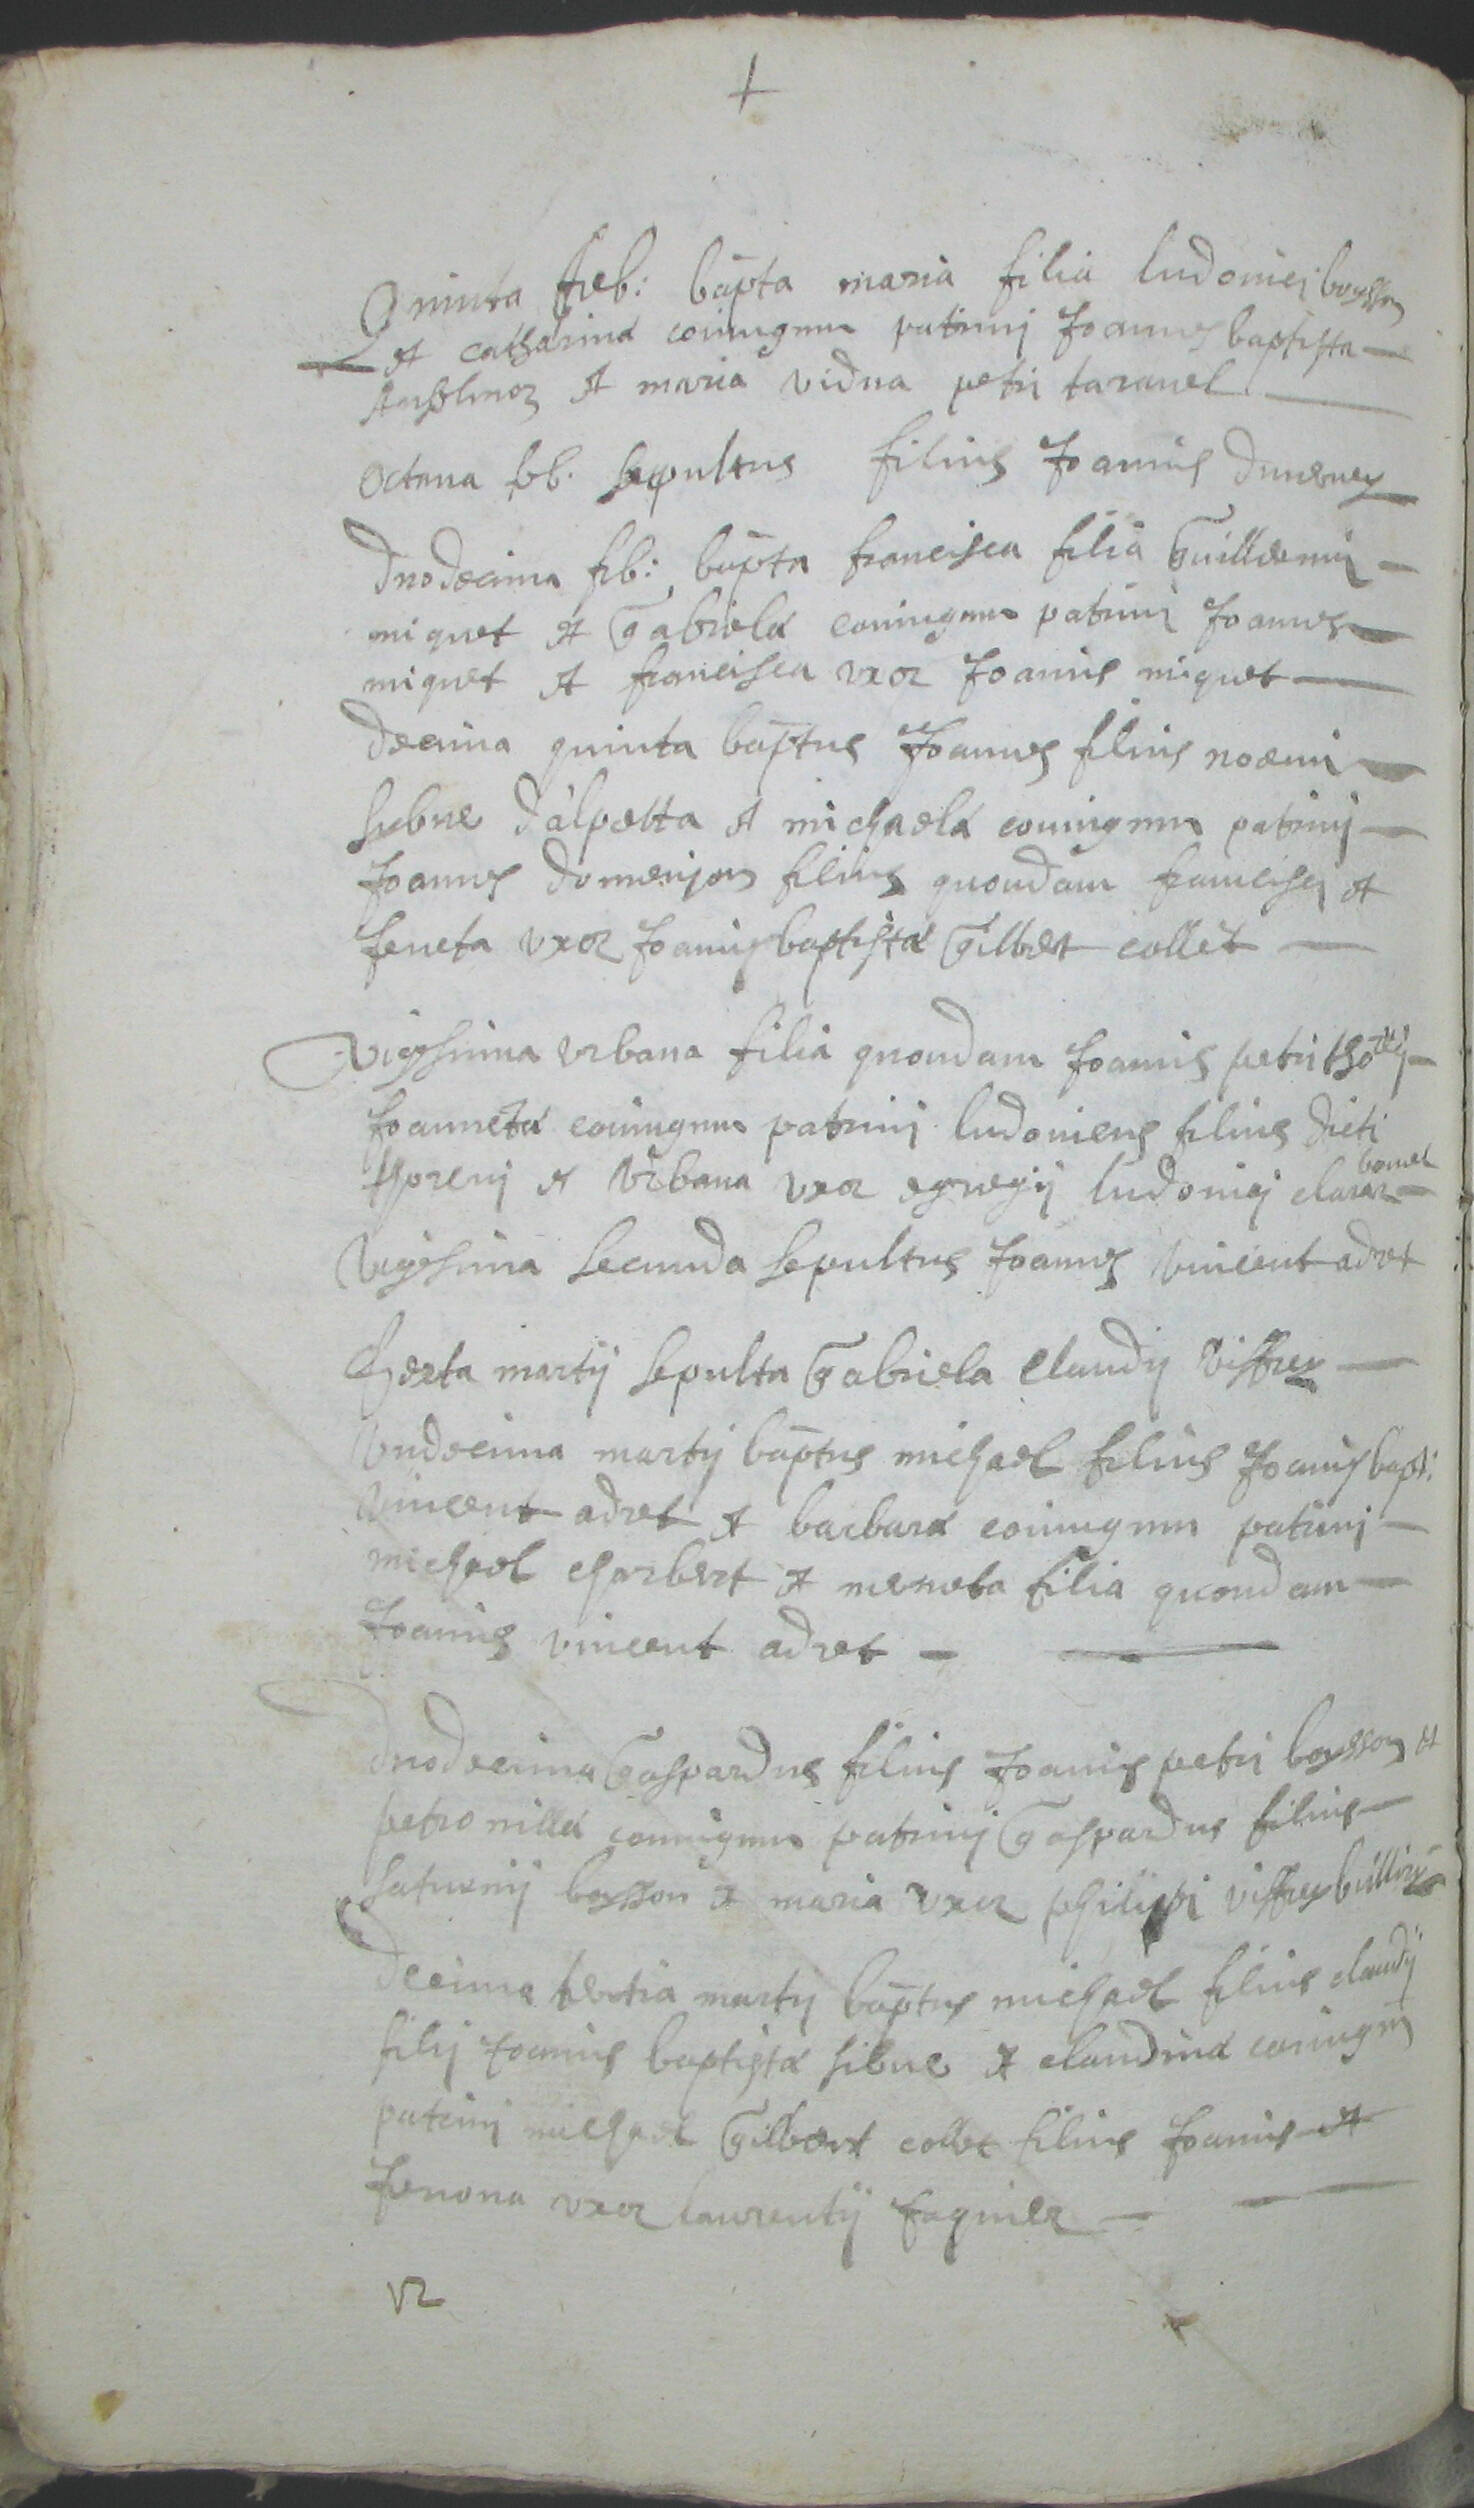 Quinta feb: bapta maria filia ludovici boysson
et catharinæ coniugum patrini Joannes baptista
et maria vidua petri taravel
octava feb. sepultus filius Joannis duverney
duodecima feb: bapta francisca filia Guillermi
miquet et Gabrielæ coniugum patrini Joannes
miquet et francisca vxor Joannis miquet
decima quinta baptus Joannes filius noemi
sibue dálpetta et michaelæ coniugum patrini
Joannes domenjon filius quondam francisci et
Jeneta vxor Joannis baptistæ Gilbert collet
vigesima vrbana filia quondam Joannis petri
Joannetæ coniugum patrini ludovicus filius dicti
et vrbana vxor egregij ludovici
vigesima secunda sepultus Joannes vincent adret
Sexta martij sepulta Gabriela Claudij Viffrey
vndecima martij baptus michael filius Joannis bapt:
vincent adret et barbaræ coniugum patrini
michael charbert et meneta filia quondam
Joannis vincent adret
duodecima Gaspardus filius Joannis petri boysson et
petronillæ coniugum patrini Gaspardus filius
saturnij boysson et maria vxor philippi viffrey
decima tertia martij baptus michael filius claudij
filij Joannis baptistæ sibue et claudinæ coniugum
patrini michael Gilbert collet filius Joannis et
Jenona vxor laurentij